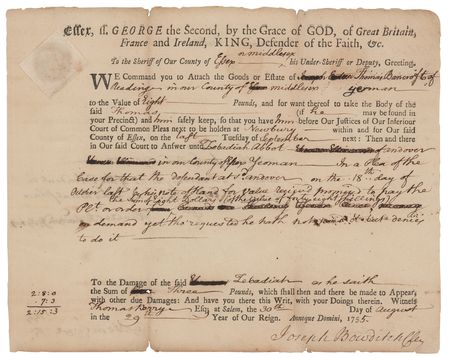 Essex, ss. GEORGE the Second, by the Grace of GOD, of Great Britain,
France and Ireland, KING, Defender of the Faith, &c.
To the Sheriff of our County of Essex or middlesex his Under-Sheriff or Deputy, Greeting.
WE Command you to Attach the Goods or Estate of Thomas Bancroft of
Reading in our County of middlesex yeoman
to the Value of Eight Pounds, and for want thereof to take the Body of the
said Thomas (if he may be found in
your Precinct) him safely keep, so that you have him before our Justices of our Inferiour
Court of Common Pleas next to be holden at Newbury within and for our said
County of Essex, on the last Tuesday of September next: Then and there
in our said Court to Answer unto Zebadiah Abbot of andover
in our County of Essex Yeoman In a Plea of the
Case for that the defendant at sd. andover on the 18th. day of
October last by his note of hand for Value recived promised to pay the
Plt. or order the sum of eight Dollars of the value of forty eight shillings
on demand yet tho requested he hath not paid it but denies
to do it
To the Damage of the said Zebadiah as he saith
the Sum of Three Pounds, which shall then and there be made to Appear,
2:8:0
with other due Damages: And have you there this Writ, with your Doings therein. Witness
:7:3
Thomas Berry Esq; at Salem, the 30th Day of August
2:15:3
in the 29 Year of Our Reign. Annoque Domini, 1755.
Joseph Bowditch Cler